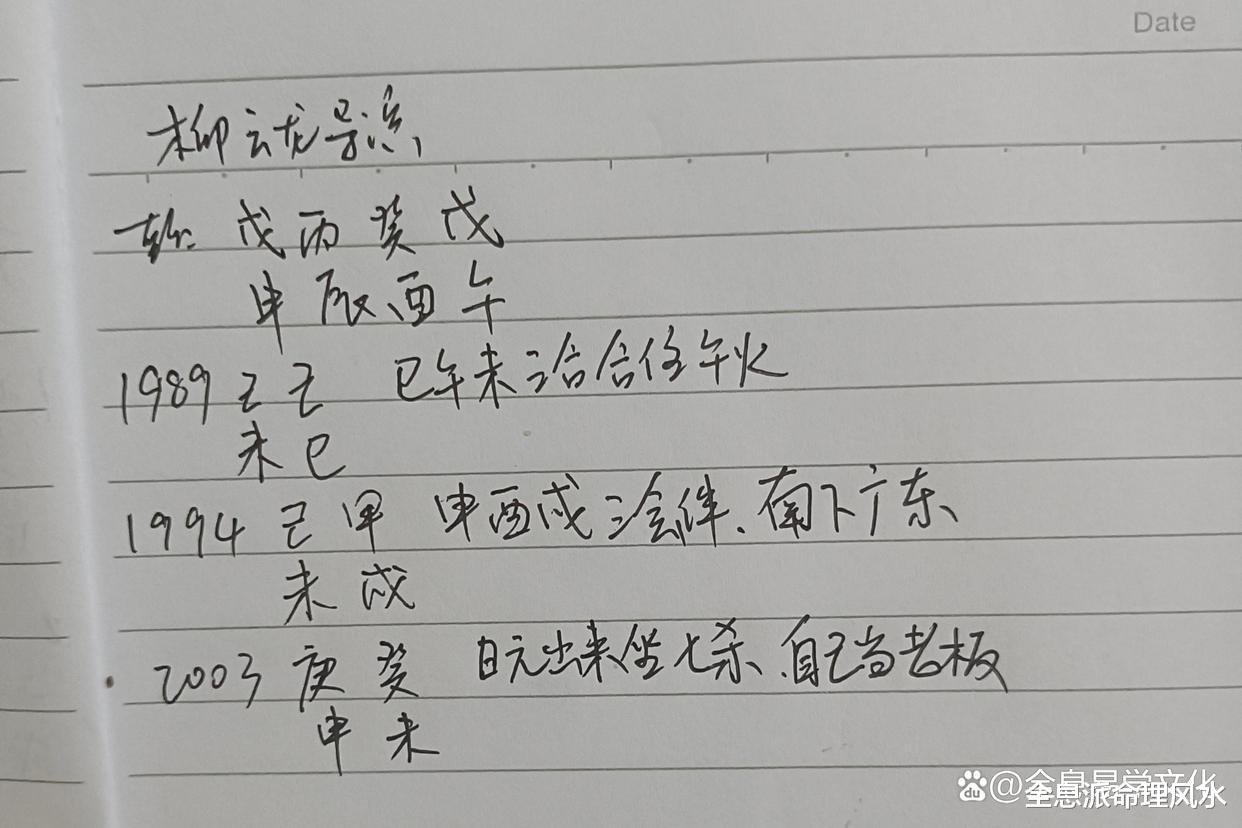 Date
柳
乾: 戊 丙 癸 戊
申 辰 酉 午
1989 己 己 巳午未三合合住午火
未 巳
1994 己 甲 申酉戌三会 南下广东
未 戌
2003 庚 癸 日元出来坐七杀、自己当老板
申 未
@全息易学文化
全息派命理风水